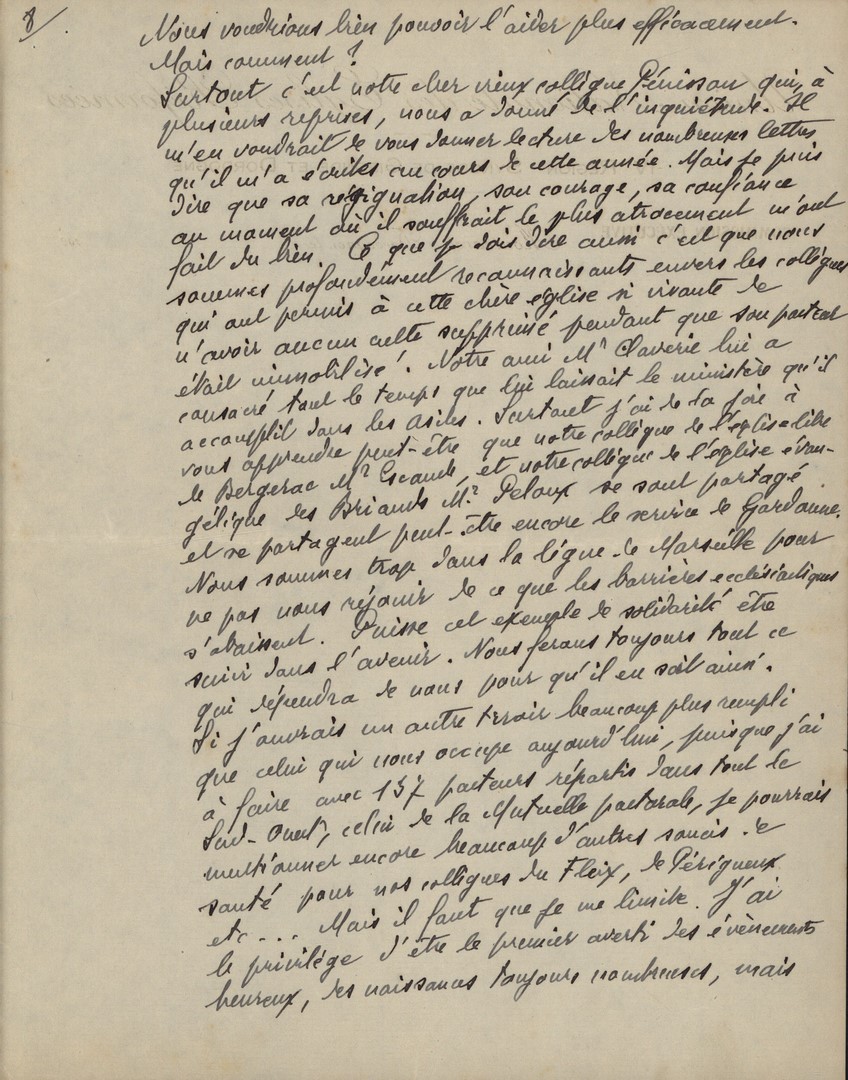 8/
Nous voudrions bien pouvoir l'aider plus efficacement.
Mais comment ?
Surtout c'est notre cher vieux collègue Pénissou qui, à
plusieurs reprises, nous a donné de l'inquiétude. Il
m'en voudrait de vous donner lecture des nombreuses lettres
qu'il m'a écrites au cours de cette année. Mais je puis
dire que sa résignation, son courage, sa confiance
au moment où il souffrait le plus atrocement m'ont
fait du bien. Ce que je dois dire aussi c'est que nous
sommes profondément reconnaissants envers les collègues
qui ont permis à cette chère église si vivante de
n'avoir aucun culte supprimé pendant que son pasteur
était immobilisé. Notre ami Mr Claverie lui a
consacré tout le temps que lui laissait le ministère qu'il
accomplit dans les Asiles. Surtout j'ai de la joie à
vous apprendre peut-être que notre collègue de l'église libre
de Bergerac Mr Escande, et notre collègue de l'église évan-
gélique des Briands Mr Peloux se sont partagé
et se partagent peut-être encore le service de Gardonne.
Nous sommes trop dans la ligne de Marseille pour
ne pas nous réjouir de ce que les barrières ecclésiastiques
s'abaissent. Puisse cet exemple de solidarité être
suivi dans l'avenir. Nous ferons toujours tout ce
qui dépendra de nous pour qu'il en soit ainsi.
Si j'ouvrais un autre tiroir beaucoup plus rempli
que celui qui nous occupe aujourd'hui, puisque j'ai
à faire avec 137 pasteurs répartis dans tout le
Sud-Ouest, celui de la Mutuelle pastorale, je pourrais
mentionner encore beaucoup d'autres soucis de
santé pour nos collègues du Fleix, de Périgueux
etc... Mais il faut que je me limite. J'ai
le privilège d'être le premier averti des évènements
heureux, des naissances toujours nombreuses, mais